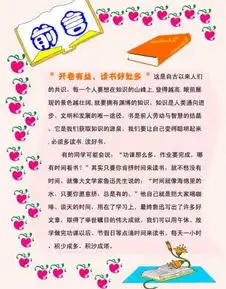 前言
"开卷有益，读书好处多"这是自古以来人们
的共识，每一个人要想在知识的山峰上，登得越高，眼前展
现的景色越壮阔，就要拥有渊博的知识。知识是人类通向进
步、文明和发展的唯一途径，书是前人劳动与智慧的结晶
，它是我们获取知识的源泉。我们要让自己变得聪明起来
，必须多读书，读好书。
有的同学可能会说："功课那么多，作业要完成，哪
有时间看书！"其实只要你肯挤时间来读书，就不怕没有
时间，就像大文学家鲁迅先生说的："时间就像海绵里的
水，只要你愿意挤，总是有的。"他自己就是把大家喝咖
啡、谈天的时间，用在了学习上，最终鲁迅写出了许多好
文章，取得了举世瞩目的伟大成就。我们可以用午休、放
学做完功课以后、节假日等点滴时间来读书，每天一小时
，积少成多，积沙成塔。